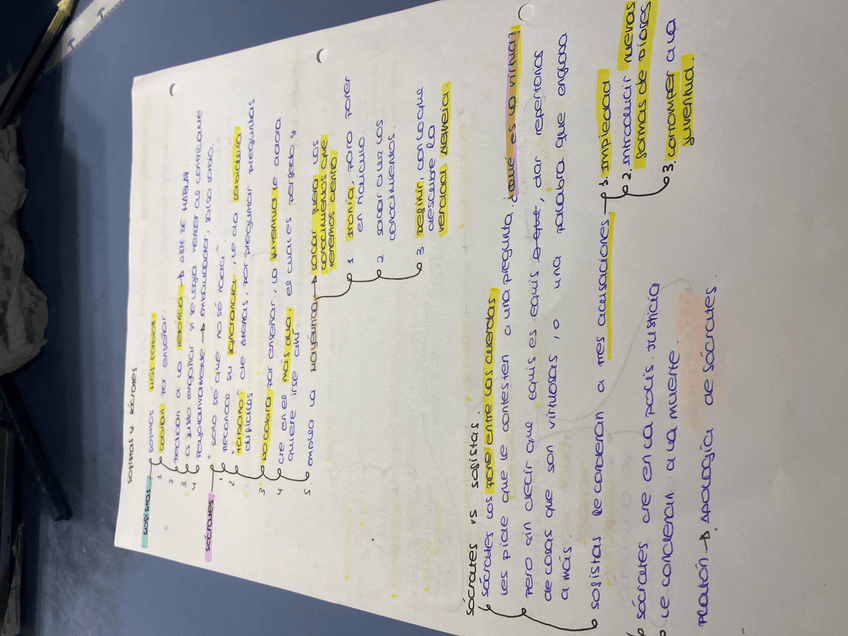 sofistas y sócrates
sofistas → somos más sabios
1 cobran por enseñar
2 Dedican a la retórica → ARTE DE HABLAR
3 a justo engañar si se logra vencer al contrincante
4 retóricamente → embaucador, falso sabio.
sócrates → "solo sé que no sé nada"
1 Reconoce su ignorancia, le da sabiduría
2 "tábano" de Atenas, por preguntar preguntas
difíciles
3 No cobra por enseñar, la juventud le adora
4 cree en el más allá, el cual es pensado y
quiere irse ahí.
5. emplea la Mayéutica → sacar fuera los
conocimientos que
tenemos dentro.
1. Ironía, para poner
en ridículo
2 sacar a luz los
conocimientos.
3. Definir, con lo que
descubre la
verdad, aleteia.
sócrates vs sofistas
sócrates los pone entre las cuerdas
les pide que le contesten a una pregunta ¿qué es la virtud?
pero sin decir que equis es equis, dar repertorios
de cosas que son virtuosas, o una palabra que engloba
a más.
sofistas le condenan a tres acusaciones → 1. Impiedad
2. introducir nuevas
formas de Dioses
3. corromper a la
juventud.
sócrates cree en la polis. Justicia
le condenan a la muerte
Platón → Apología de sócrates.